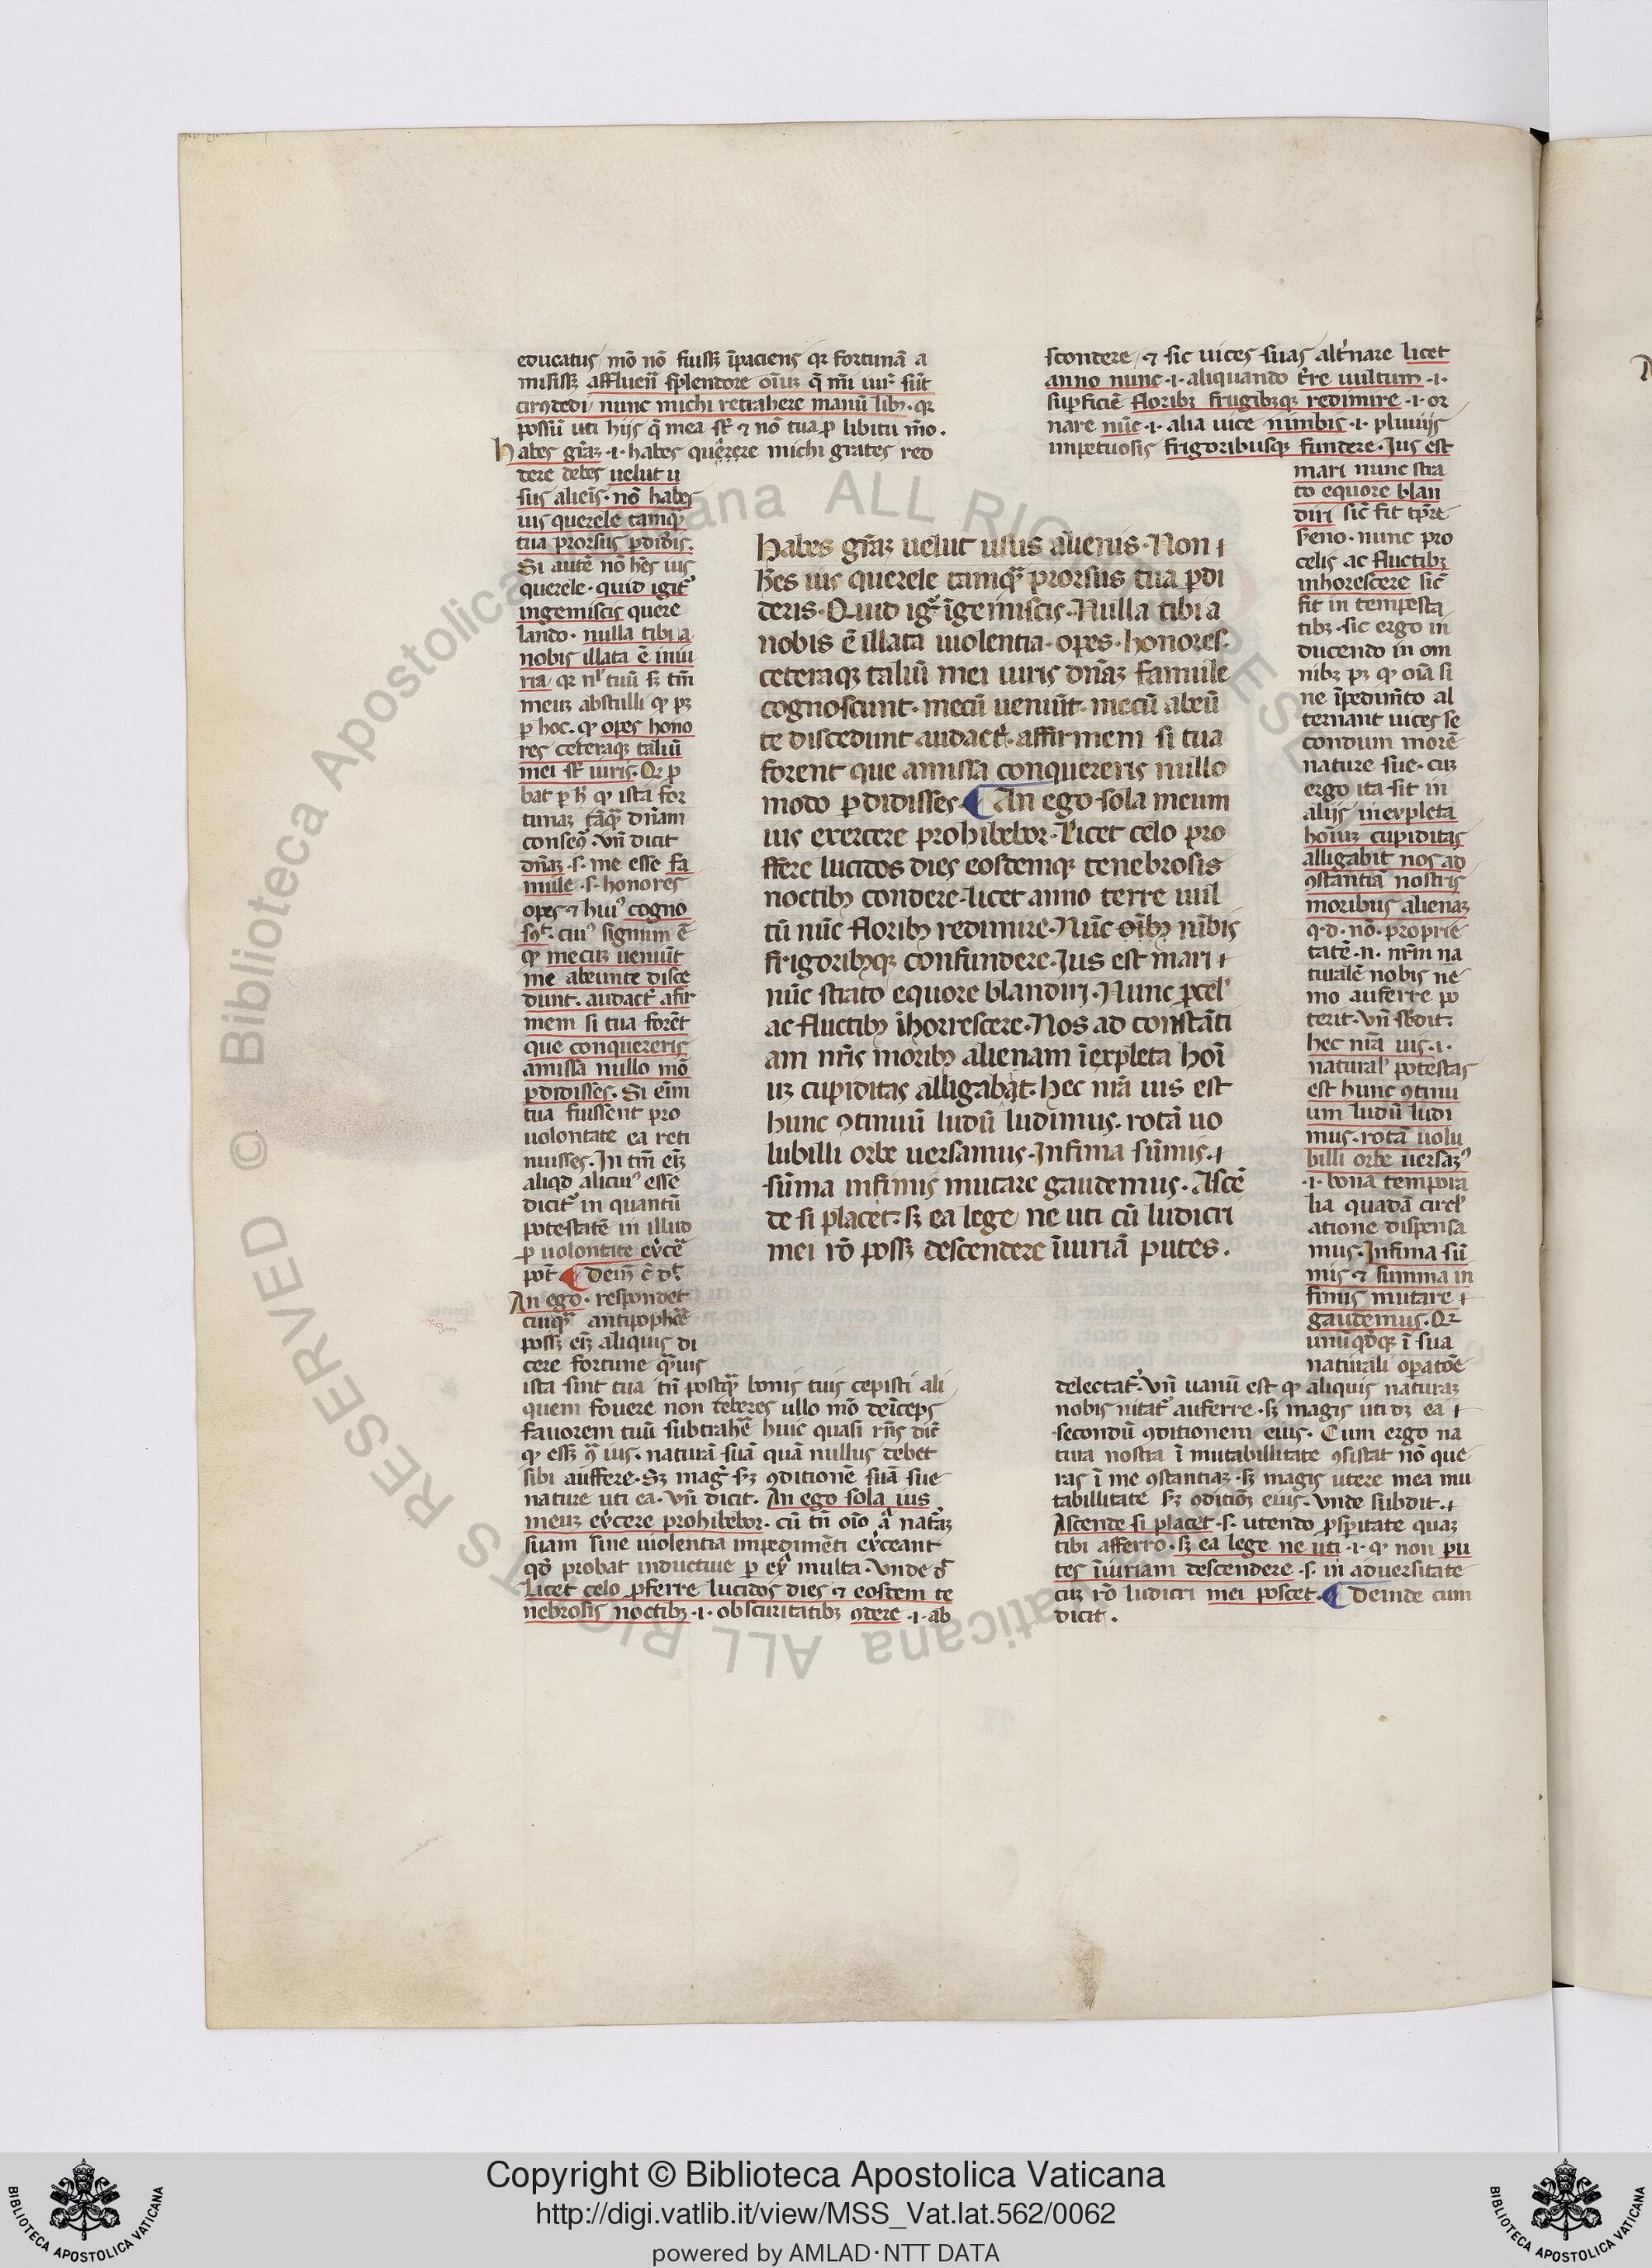 educatus mō nō fuissꝫ īpaciens qꝛ fortunā a
misissꝫ affluen̄ splendore oīuꝫ q̄ mī iur̉ sūt
cirꝯdedi nunc michi retrahere manū libꝫ · qꝛ
possū uti hijs q̄ mea sꝉ ⁊ nō tua ꝑ libitu mō .
habes gr̄aꝫ · i · habes querere michi grates red
dere debes uelut u
sus alieīs · nō habes
ius querele tamqᷓ
tua prorsus ꝑdidīs ·
Si autē nō hēs ius
querele · quid igit᷑
ingemiscis quere
lando · nulla tibi a
nobis illata ē iniu
ria qꝛ nˡ tuū sꝫ tm̄
meuꝫ abstulli qꝫ pꝫ
ꝑ hoc · qꝫ opes hono
res ceteraqꝫ taliū
mei sꝉ iuris · Qꝛ ꝓ
bat ꝑ h̄ qꝫ ista for
tunaꝫ tāqᷓ dn̄am
conseq̄ · Vn̄ dicit
dn̄aꝫ · s · me esse fa
mule · s · honores
opes ⁊ huiꝰ cogno
sc̄t · cuiꝰ signum ē
qꝫ mecuꝫ ueniūt
me abeunte disce
dunt · audact̉ afir
mem si tua forēt
que conquereris
amissa nullo mō
ꝑdidisses · Si enīm
tua fuissent pro
uolontate ea reti
nuisses · In tm̄ eīꝫ
aliqd alicuiꝰ esse
dicit᷑ in quantū
potestatē in illud
ꝓ uolontate ex̉cē
pōt ¶ Dein̄ c̄ dꝉ
An ego · respondet
cuiqᷓ antipophē
possꝫ eīꝫ aliquis di
cere fortune qᷓuis
ista sint tua tn̄ postqᷓ bonis tuis cepisti ali
quem fouere non deberes ullo mō deīceps
fauorem tuū subtrahē huic quasi rn̄s dic̄
qꝫ essꝫ ꝯ ius · naturā suā quā nullus debet
sibi auffere · Sꝫ mag̉ sꝫ ꝯditionē suā sue
nature uti ea · Vn̄ dicit · An ego sola ius
meuꝫ ex̉cere prohibebor · cū tn̄ oīo a᷑ nat̉aꝫ
suam sine uiolentia impedimēti ex̉ceant
qd̄ probat inductiue ꝑ ex̉ multa · Vnde d̄
Licet celo ꝓferre lucidos dies ⁊ eosdem te
nebrosis noctibꝫ · i · obscuritatibꝫ ꝯdere · i · ab
habes gr̄aꝫ uelut usus alienis · Non ⁊
hēs ius querele tamqᷓ prorsus tua ꝑdi
deris · Quid ig᷑ īgemiscis · Nulla tibi a
nobis ē illata uiolentia · opes · honores ·
ceteraqꝫ taliū mei iuris dn̄aꝫ famule
cognoscunt · mecū ueniūt · mecū abeū
te discedunt audact̉ · affirmem si tua
forent que amissa conquereris nullo
modo ꝑdidisses · ¶ An ego sola meum
ius exercere prohibebor · Licet celo pro
ffere lucidos dies eosdemqꝫ tenebrosis
noctibꝫ condere · licet anno terre uul
tū nūc floribꝫ redimire · Nūc oībꝫ nībis
frigoribꝫqꝫ confundere · Jus est mari ⁊
nūc strato equore blandiri · Nunc ꝓcelˡ
ac fluctibꝫ īhorrescere · Nos ad constāti
am nr̄is moribꝫ alienam īexpleta hoī
uꝫ cupiditas alligabit · hec nr̄a uis est
hunc ꝯtinuū ludū ludimus · rotā uo
lubilli orbe uersamus · Infima sūmis · ⁊
sūma infimis mutare gaudemus · Ascē
de si placet · sꝫ ea lege ne uti cū ludicri
mei rō possꝫ descendere īiuriā putes .
scondere ⁊ sic uices suas alt̉nare licet
anno nunc · i · aliquando t̉re uultum · i ·
suꝑficiē floribꝫ frugibꝫqꝫ redimire · i · or
nare nūc · i · alia uice nimbis · i · pluuijs
impetuosis frigoribusqꝫ fundere · Jus est
mari nunc stra
to equore blan
diri sic̄ fit tꝑre
sereno · nunc pro
celis ac fluctibꝫ
inhorescere sic̄
fit in tempesta
tibꝫ · sic ergo in
ducendo in om
nibꝫ pꝫ qꝫ oīa si
ne īpedimēto al
ternant uices se
condum morē
nature sue · cuꝫ
ergo ita sit in
alijs inexpleta
hoīuꝫ cupiditas
alligabit nos ad
ꝯstantiā nostris
moribus alienaꝫ
q · d · nō · proprie
tatē · n · nr̄m na
turalē nobis ne
mo auferre po
terit · Vn̄ sb̄dit ·
hec nr̄a uis · i ·
naturalˡ potestas
est hunc ꝯtinu
um ludū ludi
mus · rotā uolu
billi orbe uersaꝫꝰ
· i · bona tempora
lia quadā circlˡ
atione dispensa
mus · Infima sū
mis ⁊ summa in
fimis mutare ⁊
gaudemus · Qꝛ
unūqd̄qꝫ ī sua
naturali oꝑatōe
delectat᷑ · Vn̄ uanū est qꝫ aliquis naturaꝫ
nobis nitat᷑ auferre · sꝫ magis uti dꝫ ea ⁊
secondū ꝯditionem eius · Cum ergo na
tura nostra ī mutabillitate ꝯsistat nō que
ras ī me ꝯstantiaꝫ · sꝫ magis utere mea mu
tabillitate sꝫ ꝯditiōꝫ eius · Vnde subdit · ⁊
Ascende si placet · s · utendo ꝓsꝑitate quaꝫ
tibi afferro · sꝫ ea lege ne uti · i · qꝫ non pu
tes īiuriam descendere · s · in aduersitate
cuꝫ rō ludicri mei poscet · ¶ Deinde cum
dicit .
Copyright © Biblioteca Apostolica Vaticana
http://digi.vatlib.it/view/MSS_Vat.lat.562/0062
powered by AMLAD·NTT DATA